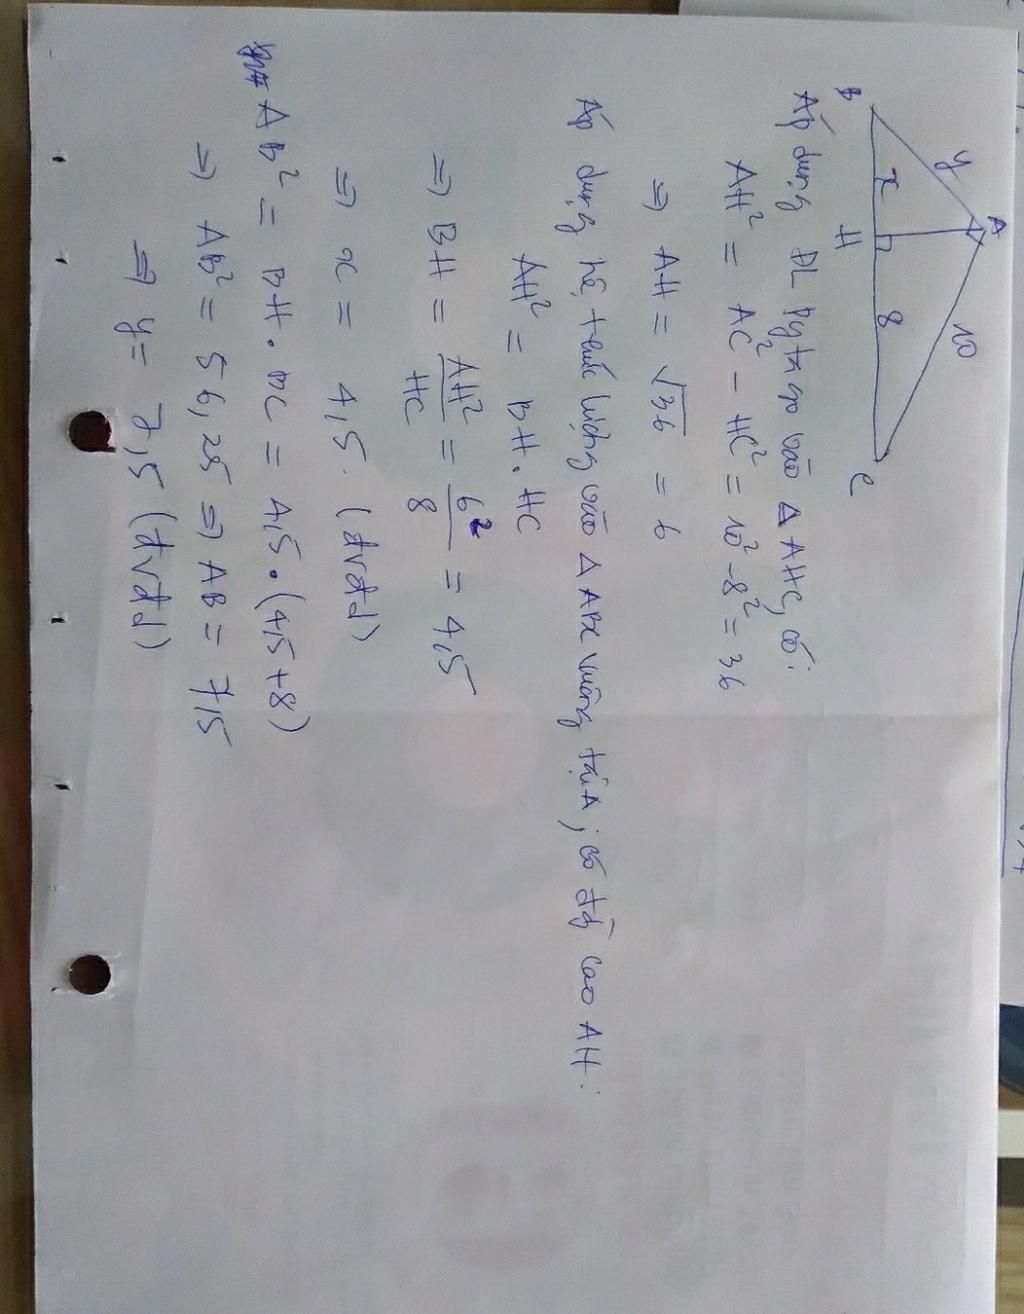 A
y
10
B
x
8
C
H
Áp dụng ĐL Pytago vào Δ AHC, có:
AH² = AC² - HC² = 10² - 8² = 36
⇒ AH = √36 = 6
Áp dụng hệ thức lượng vào Δ ABC vuông tại A, có đg cao AH:
AH² = BH . HC
⇒ BH = AH²/HC = 6²/8 = 4,5
⇒ x = 4,5. (đvđd)
AB² = BH . BC = 4,5 . (4,5 + 8)
⇒ AB² = 56,25 ⇒ AB = 7,5
⇒ y = 7,5 (đvđd)